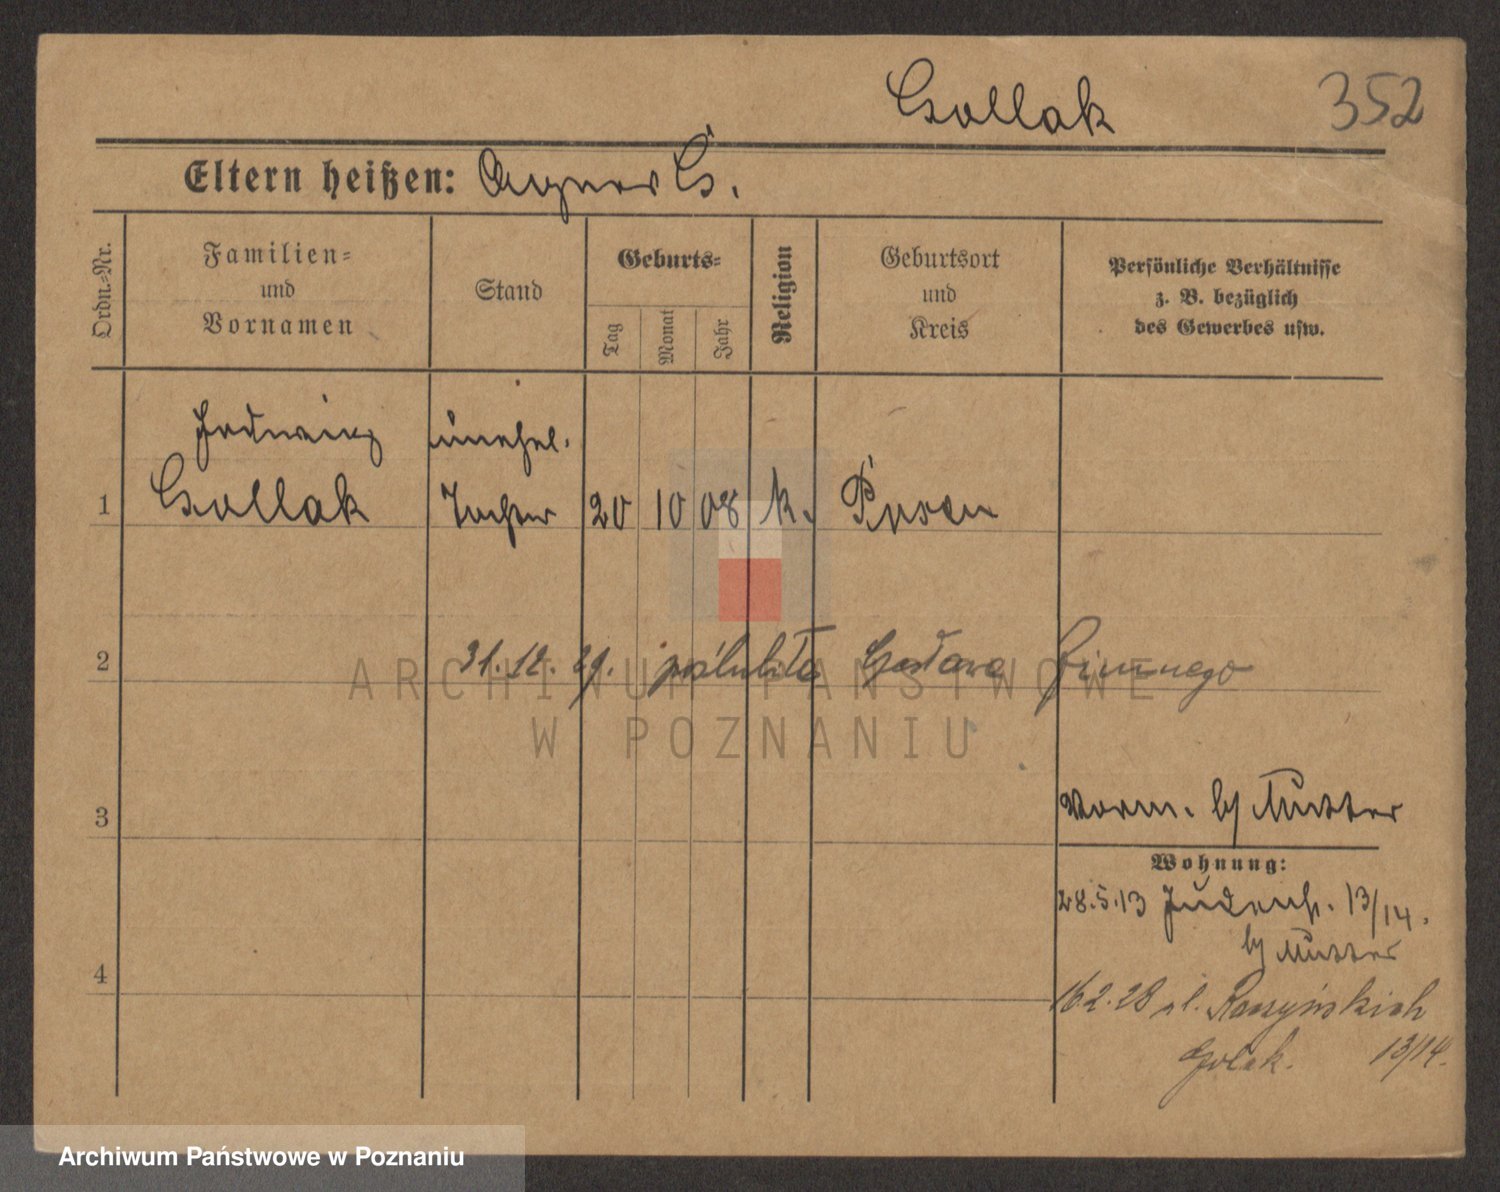 Gollak 352
Eltern heißen: Agnes G.
Ordn.-Nr.
Familien- und Vornamen
Stand
Geburts-
Tag
Monat
Jahr
Religion
Geburtsort und Kreis
Persönliche Verhältnisse
z. B. bezüglich
des Gewerbes usw.
Hedwig unehel.
1 Gollak Tochter 20 10 08 k. Posen
2 31.12.29. poślubiła Gustawa
3
Vorm. by Mutter
Wohnung:
28.5.13 Judenst. 13/14.
by Mutter
4
16.2.28 ul. Raczyńskich
Golak. 13/14.
ARCHIWUM PAŃSTWOWE
W POZNANIU
Archiwum Państwowe w Poznaniu